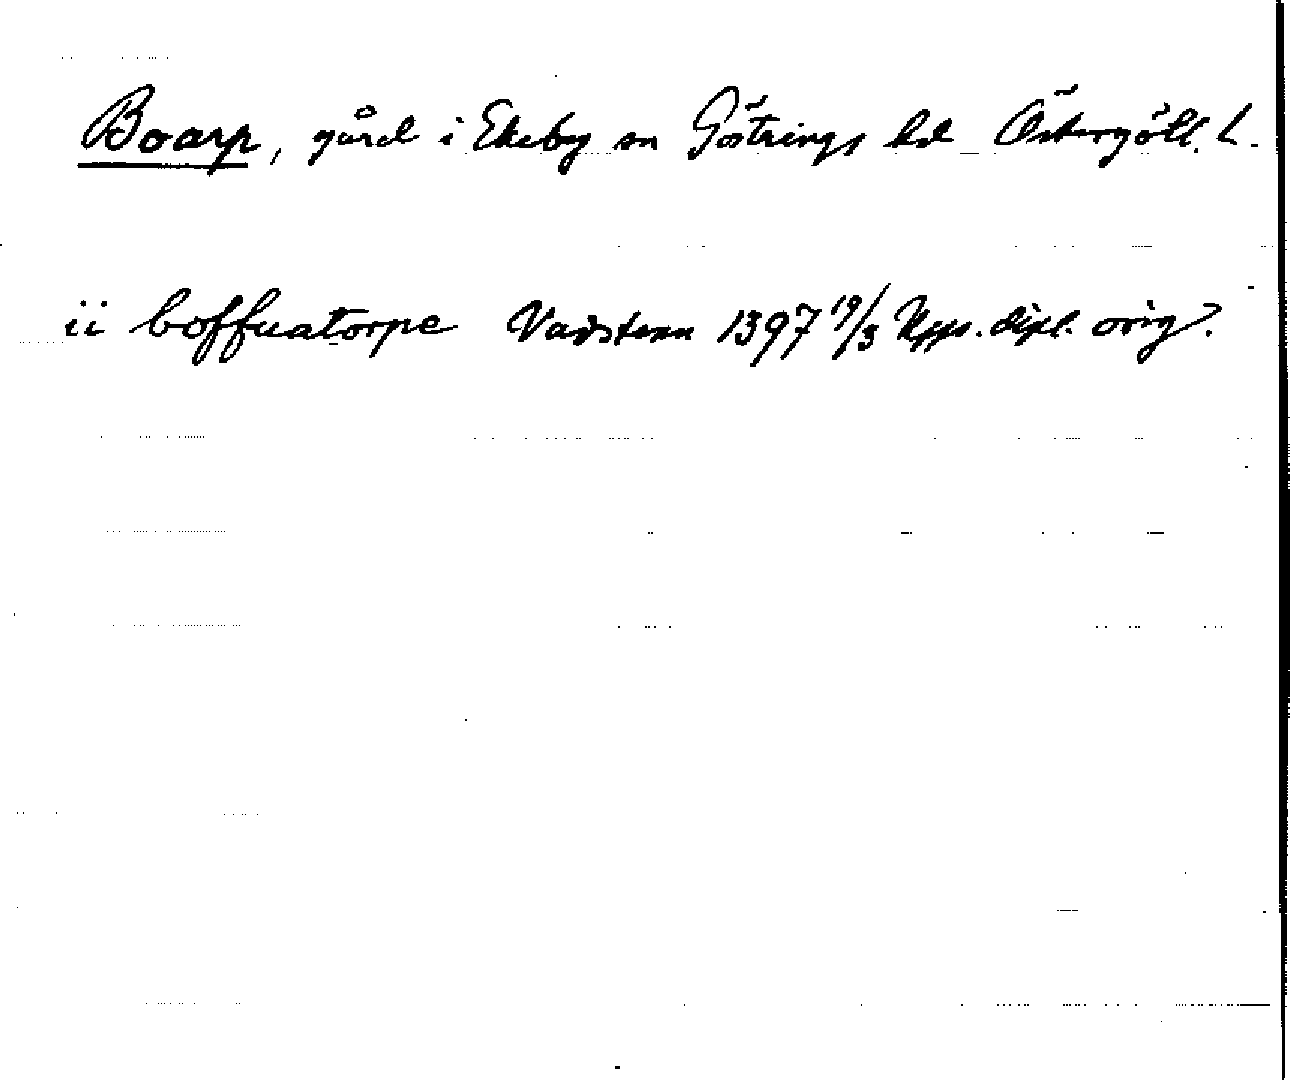 Boarp, gård i Ekeby sn Göstrings hd Östergötl. L.
ii boffuatorpe Vadstena 1397 19/3 Upps. dipl. orig.